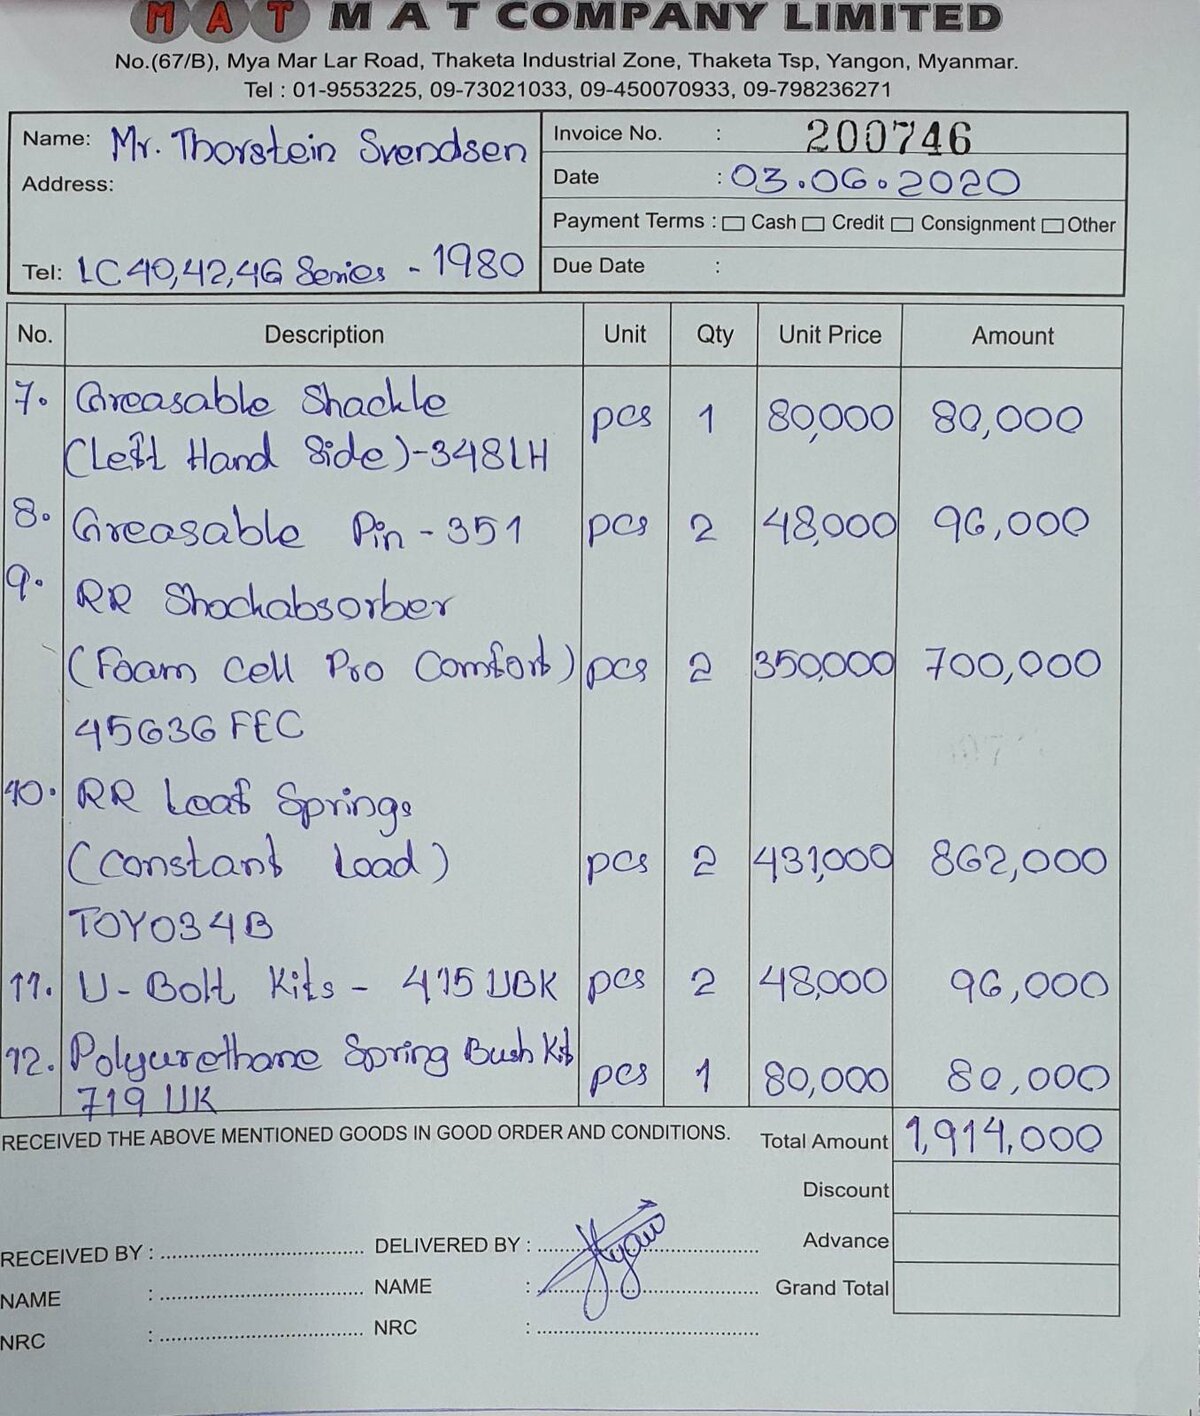 M A T M A T COMPANY LIMITED
No.(67/B), Mya Mar Lar Road, Thaketa Industrial Zone, Thaketa Tsp, Yangon, Myanmar.
Tel : 01-9553225, 09-73021033, 09-450070933, 09-798236271
Name: Mr. Thorstein Svendsen
Address:
Tel: LC40,42,46 Series - 1980
Invoice No. : 200746
Date : 03.06.2020
Payment Terms : Cash Credit Consignment Other
Due Date :
No. Description Unit Qty Unit Price Amount
7. Greasable Shackle
(Left Hand Side)-348LH pcs 1 80,000 80,000
8. Greasable Pin - 351 pcs 2 48,000 96,000
9. RR Shockabsorber
(Foam Cell Pro Comfort) pcs 2 350,000 700,000
45636 FEC
10. RR Leaf Springs
(Constant Load) pcs 2 431,000 862,000
TOY034B
11. U-Bolt Kits - 415 UBK pcs 2 48,000 96,000
12. Polyurethane Spring Bush Kit
719 UK pcs 1 80,000 80,000
RECEIVED THE ABOVE MENTIONED GOODS IN GOOD ORDER AND CONDITIONS. Total Amount 1,914,000
Discount
Advance
Grand Total
RECEIVED BY : DELIVERED BY :
NAME : NAME :
NRC : NRC :